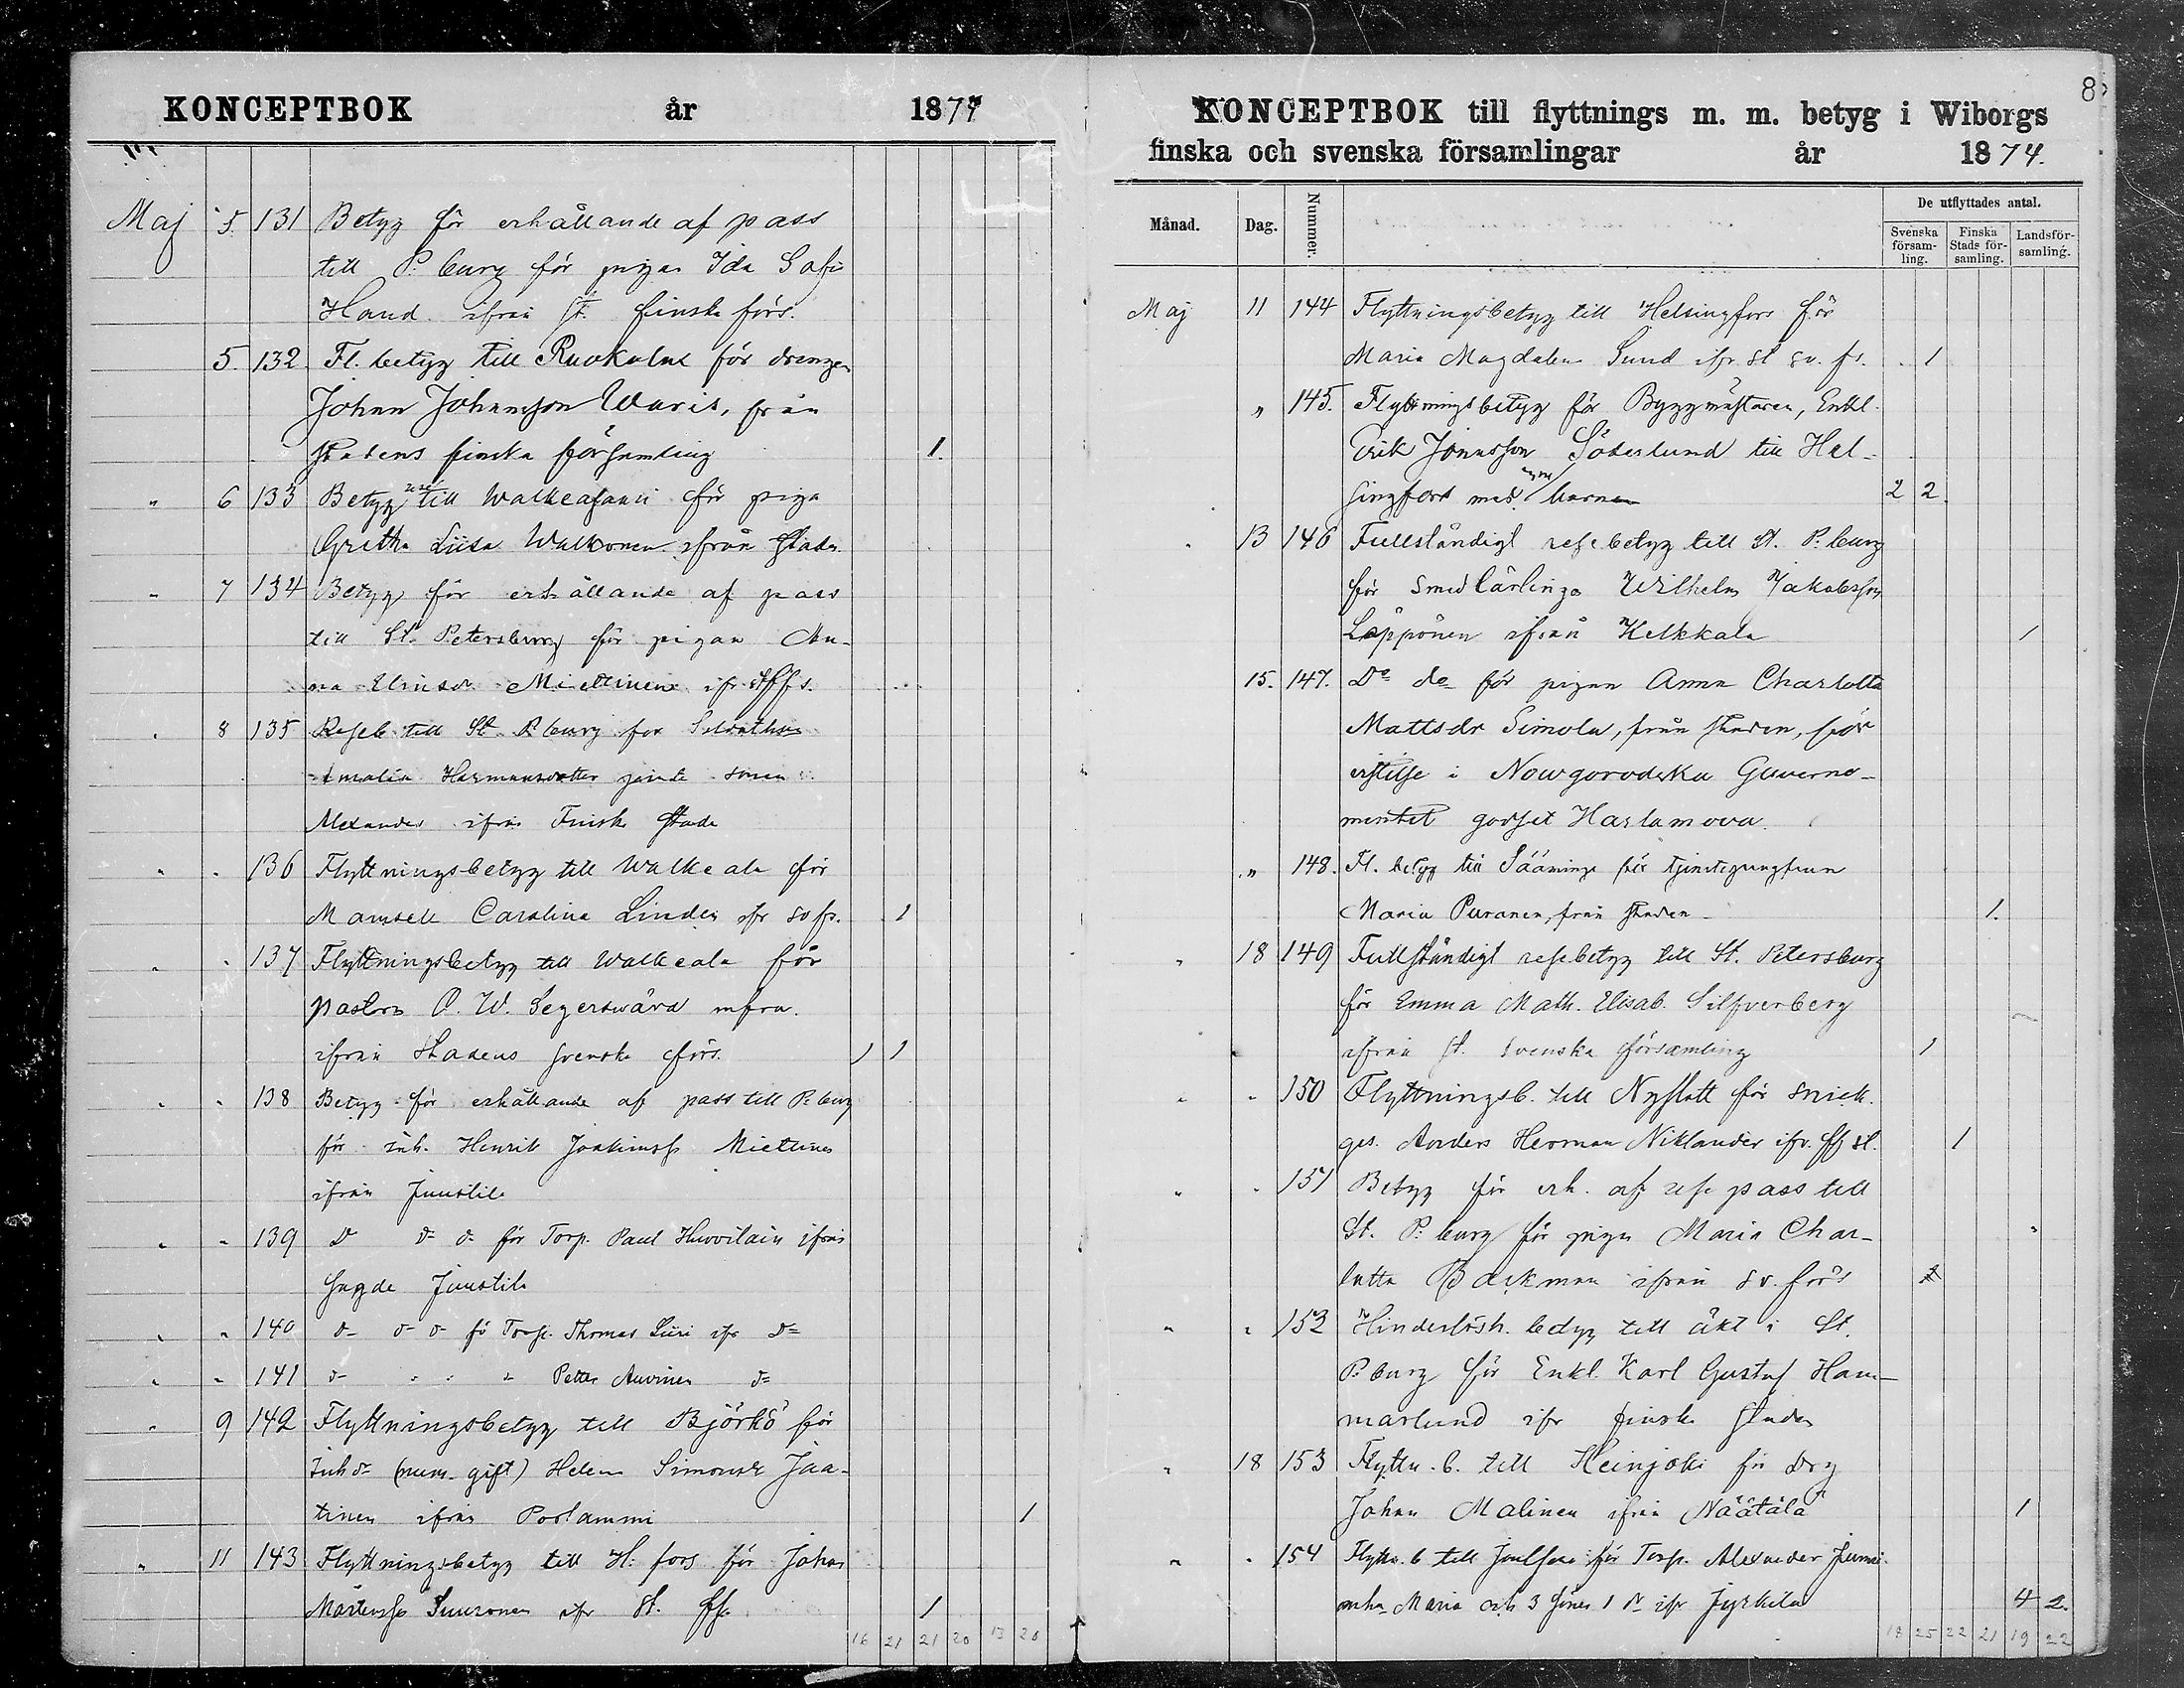 KONCEPTBOK år 1874
Maj 5. 131 Betyg för erhållande af pass
till P:burg för pigan Ida Sofia
Hand ifrån st. finska förs.
5. 132. Fl. betyg till Ruokolax för drengen
Johan Johansson Waris, från
stadens finska församling 1.
" 6 133 Betyg till Walkeasaari för piga
Gretha Liisa Walkonen ifrån staden
" 7 134 Betyg för erhållande af pass
till St. Petersburg för pigan An-
na Ulrika Miettinen ifr. st. f. fs.
" 8 135 Reseb. till St. P.burg for
Amalia Hermansdotter sonen
Alexander ifrån Finska stads
" " 136 Flyttningsbetyg till Walkeala för
Mamsell Carolina Linden ifr sv fs. 1
" " 137 Flyttningsbetyg till Walkeala för
pastorn O. W. Segerswärd m fru
ifrån Stadens svenska förs. 1 1
" " 138 Betyg för erhållande af pass till P:burg
för inh. Henrik Joakimss Miettinen
ifrån Juustila
" " 139 D d d för Torp. Paul Huovilain ifrån
Juustila
" " 140 d d d fö Torp. Thomas Siiri ifr D
" " 141 d " " " Petter Auvinen d
" 9 142 Flyttningsbetyg till Björkö för
inh dr (num. gift) Helena Simonsdr Jaa-
tinen ifrån Porlammi 1
" 11 143 Flyttningsbetyg till H:fors för Johan
Mårtensson Suuronen ifr St. ffs. 1
16 21 21 20 13 20
8
KONCEPTBOK till flyttnings m. m. betyg i Wiborgs
finska och svenska församlingar år 1874.
Månad. Dag. Nummer. De utflyttades antal.
Svenska församling. Finska Stads församling. Landsförsamling.
Maj 11 144 Flyttningsbetyg till Helsingfors för
Maria Magdalena Sund ifr. st sv. fs. 1
" 145. Flyttningsbetyg för Byggmästaren, Enkl.
Erik Jonasson Söderlund till Hel-
singfors med barnen 2 2
" 13 146 Fullständigt resebetyg till St. P:burg
för Smedlärlinga Wilhelm Jakobsson
Läppönen ifrån Kelkkala 1
15. 147. Do do för pigan Anna Charlotta
Mattsdr Simola, från staden, för
vistelse i Nowgorodska Guverne-
mentet godset Harlamova
" 148. Fl. betyg till Sääminge för tjenstejungfrun
Maria Puranen, från staden 1.
" 18 149 Fullständigt resebetyg till St. Petersburg
för Emma Math. Elisab. Silfverberg
ifrån st. svenska församling 1
" " 150 Flyttningsb. till Nyslott för snick.
ges. Anders Herman Niklander ifr. ff st. 1
" " 151 Betyg för erh. af rese pass till
St. P:burg för pigan Maria Char-
lotta Backman ifrån sv. förs
" " 152 Hinderlösh. betyg till äkt i St.
P:burg för Enkl. Karl Gustaf Ham-
marlund ifr finska staden
" 18 153 Flyttn. b. till Heinjoki för drg
Johan Malinen ifrån Näätälä 1
" " 154 Flyttn. b till Joutseno för Torp. Alexander Jumi
m h Maria och 3 söner 1 dr ifr Jyrkilä 4 2.
18 25 22 21 19 22